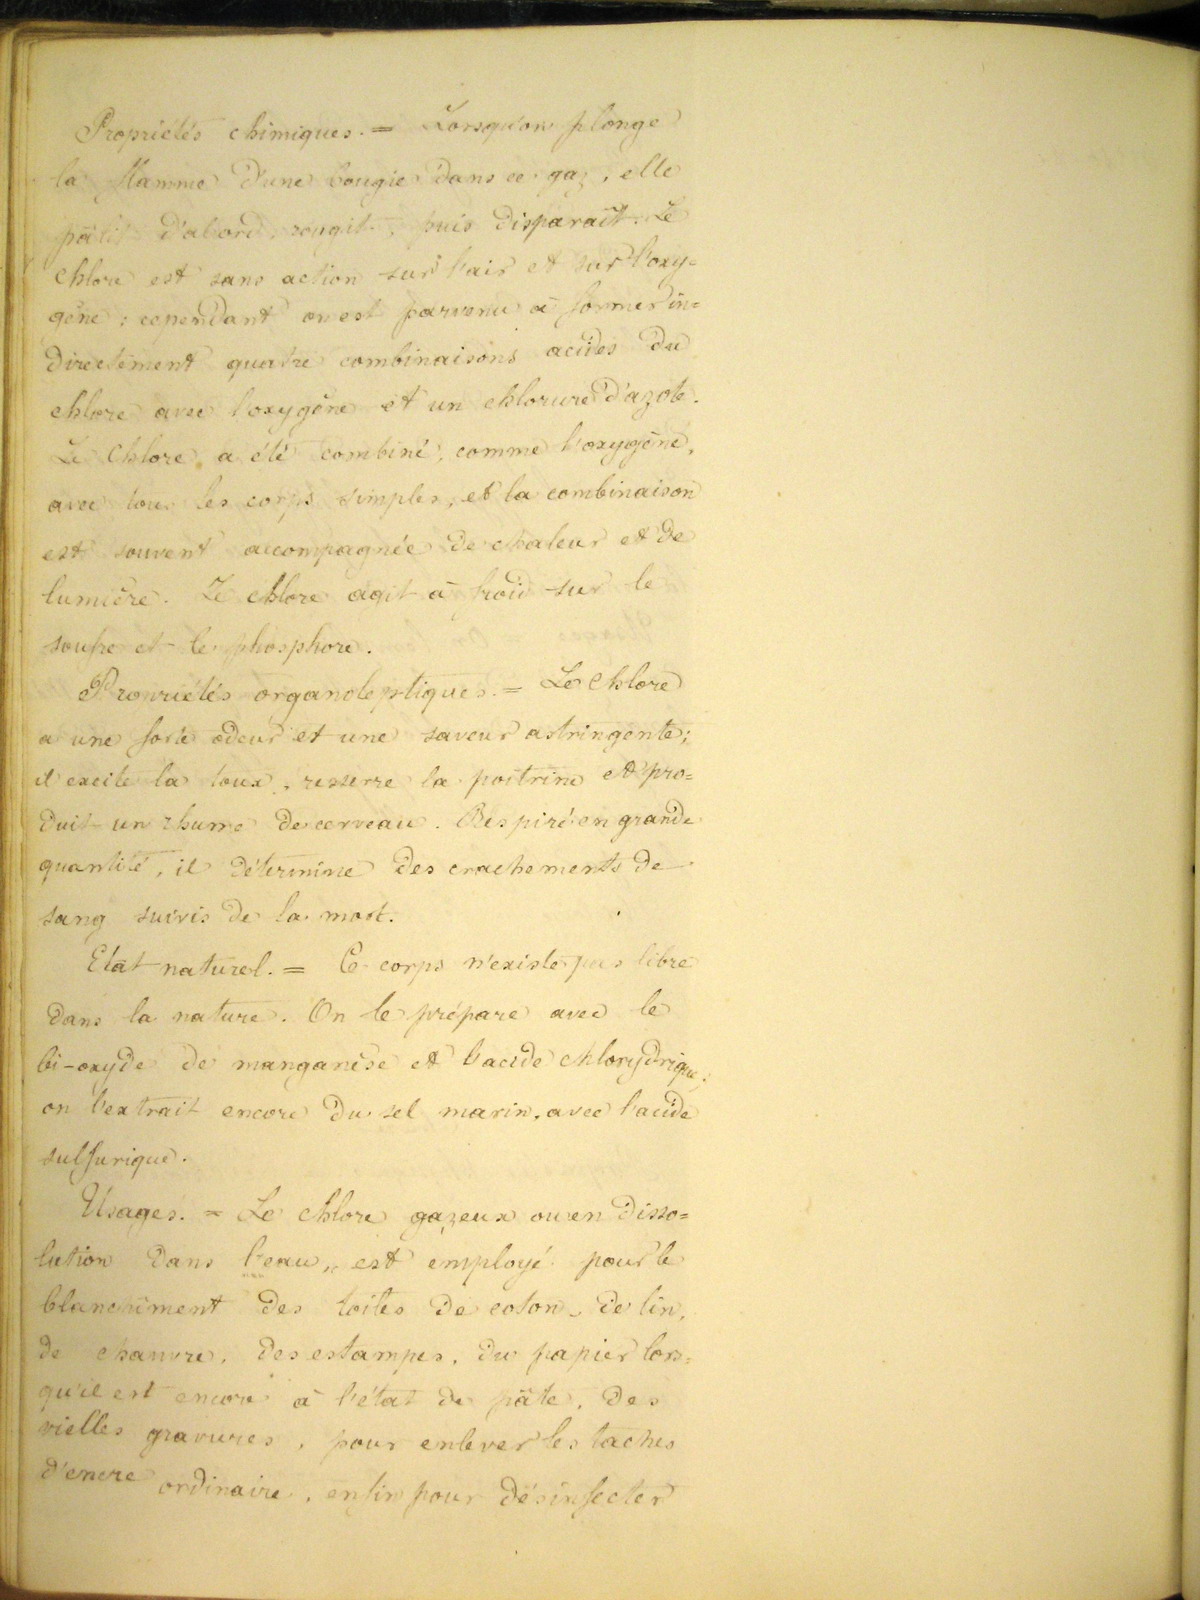 Propriétés chimiques. = Lorsqu'on plonge
la flamme d'une bougie dans ce gaz, elle
pâlit d'abord, rougit, puis disparaît. Le
chlore est sans action sur l'air et sur l'oxy=
gène ; cependant on est parvenu à former in=
directement quatre combinaisons acides du
chlore avec l'oxygène et un chlorure d'azote.
Le Chlore a été combiné, comme l'oxygène,
avec tous les corps simples, et la combinaison
est souvent accompagnée de chaleur et de
lumière. Le chlore agit à froid sur le
soufre et le phosphore.
Propriétés organoleptiques. = Le Chlore
a une forte odeur et une saveur astringente ;
il excite la toux, resserre la poitrine et pro=
duit un rhume de cerveau. Respiré en grande
quantité, il détermine des crachements de
sang suivis de la mort.
Etat naturel. = Ce corps n'existe pas libre
dans la nature. On le prépare avec le
bi-oxyde de manganèse et l'acide chlorydrique ;
on l'extrait encore du sel marin, avec l'acide
sulfurique.
Usages. = Le chlore gazeux ou en disso=
lution dans l'eau, est employé pour le
blanchiment des toiles de coton, de lin,
de chanvre, des estampes, du papier lors=
qu'il est encore à l'état de pâte, des
vielles gravures, pour enlever les taches
d'encre ordinaire, enfin pour désinfecter